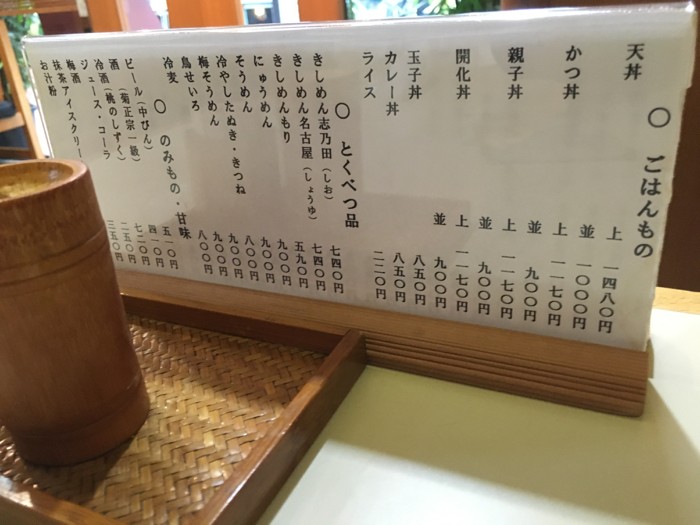 〇 ごはんもの
天丼 上 一四八〇円
並 一〇〇〇円
かつ丼 上 一一七〇円
並 九〇〇円
親子丼 上 一一七〇円
並 九〇〇円
開化丼 上 一一七〇円
並 九〇〇円
玉子丼 八五〇円
カレー丼 八五〇円
ライス 二二〇円
〇 とくべつ品
きしめん志乃田(しお) 七四〇円
きしめん名古屋(しょうゆ) 七四〇円
きしめんもり 五九〇円
にゅうめん 九〇〇円
そうめん 九〇〇円
冷やしたぬき・きつね 八〇〇円
梅そうめん 九〇〇円
鳥せいろ 九〇〇円
冷麦 八〇〇円
〇 のみもの・甘味
ビール(中びん) 五一〇円
酒(菊正宗一級) 四一〇円
冷酒(桃のしずく) 七二〇円
ジュース・コーラ 二五〇円
梅酒 三五〇円
抹茶アイスクリー
お汁粉